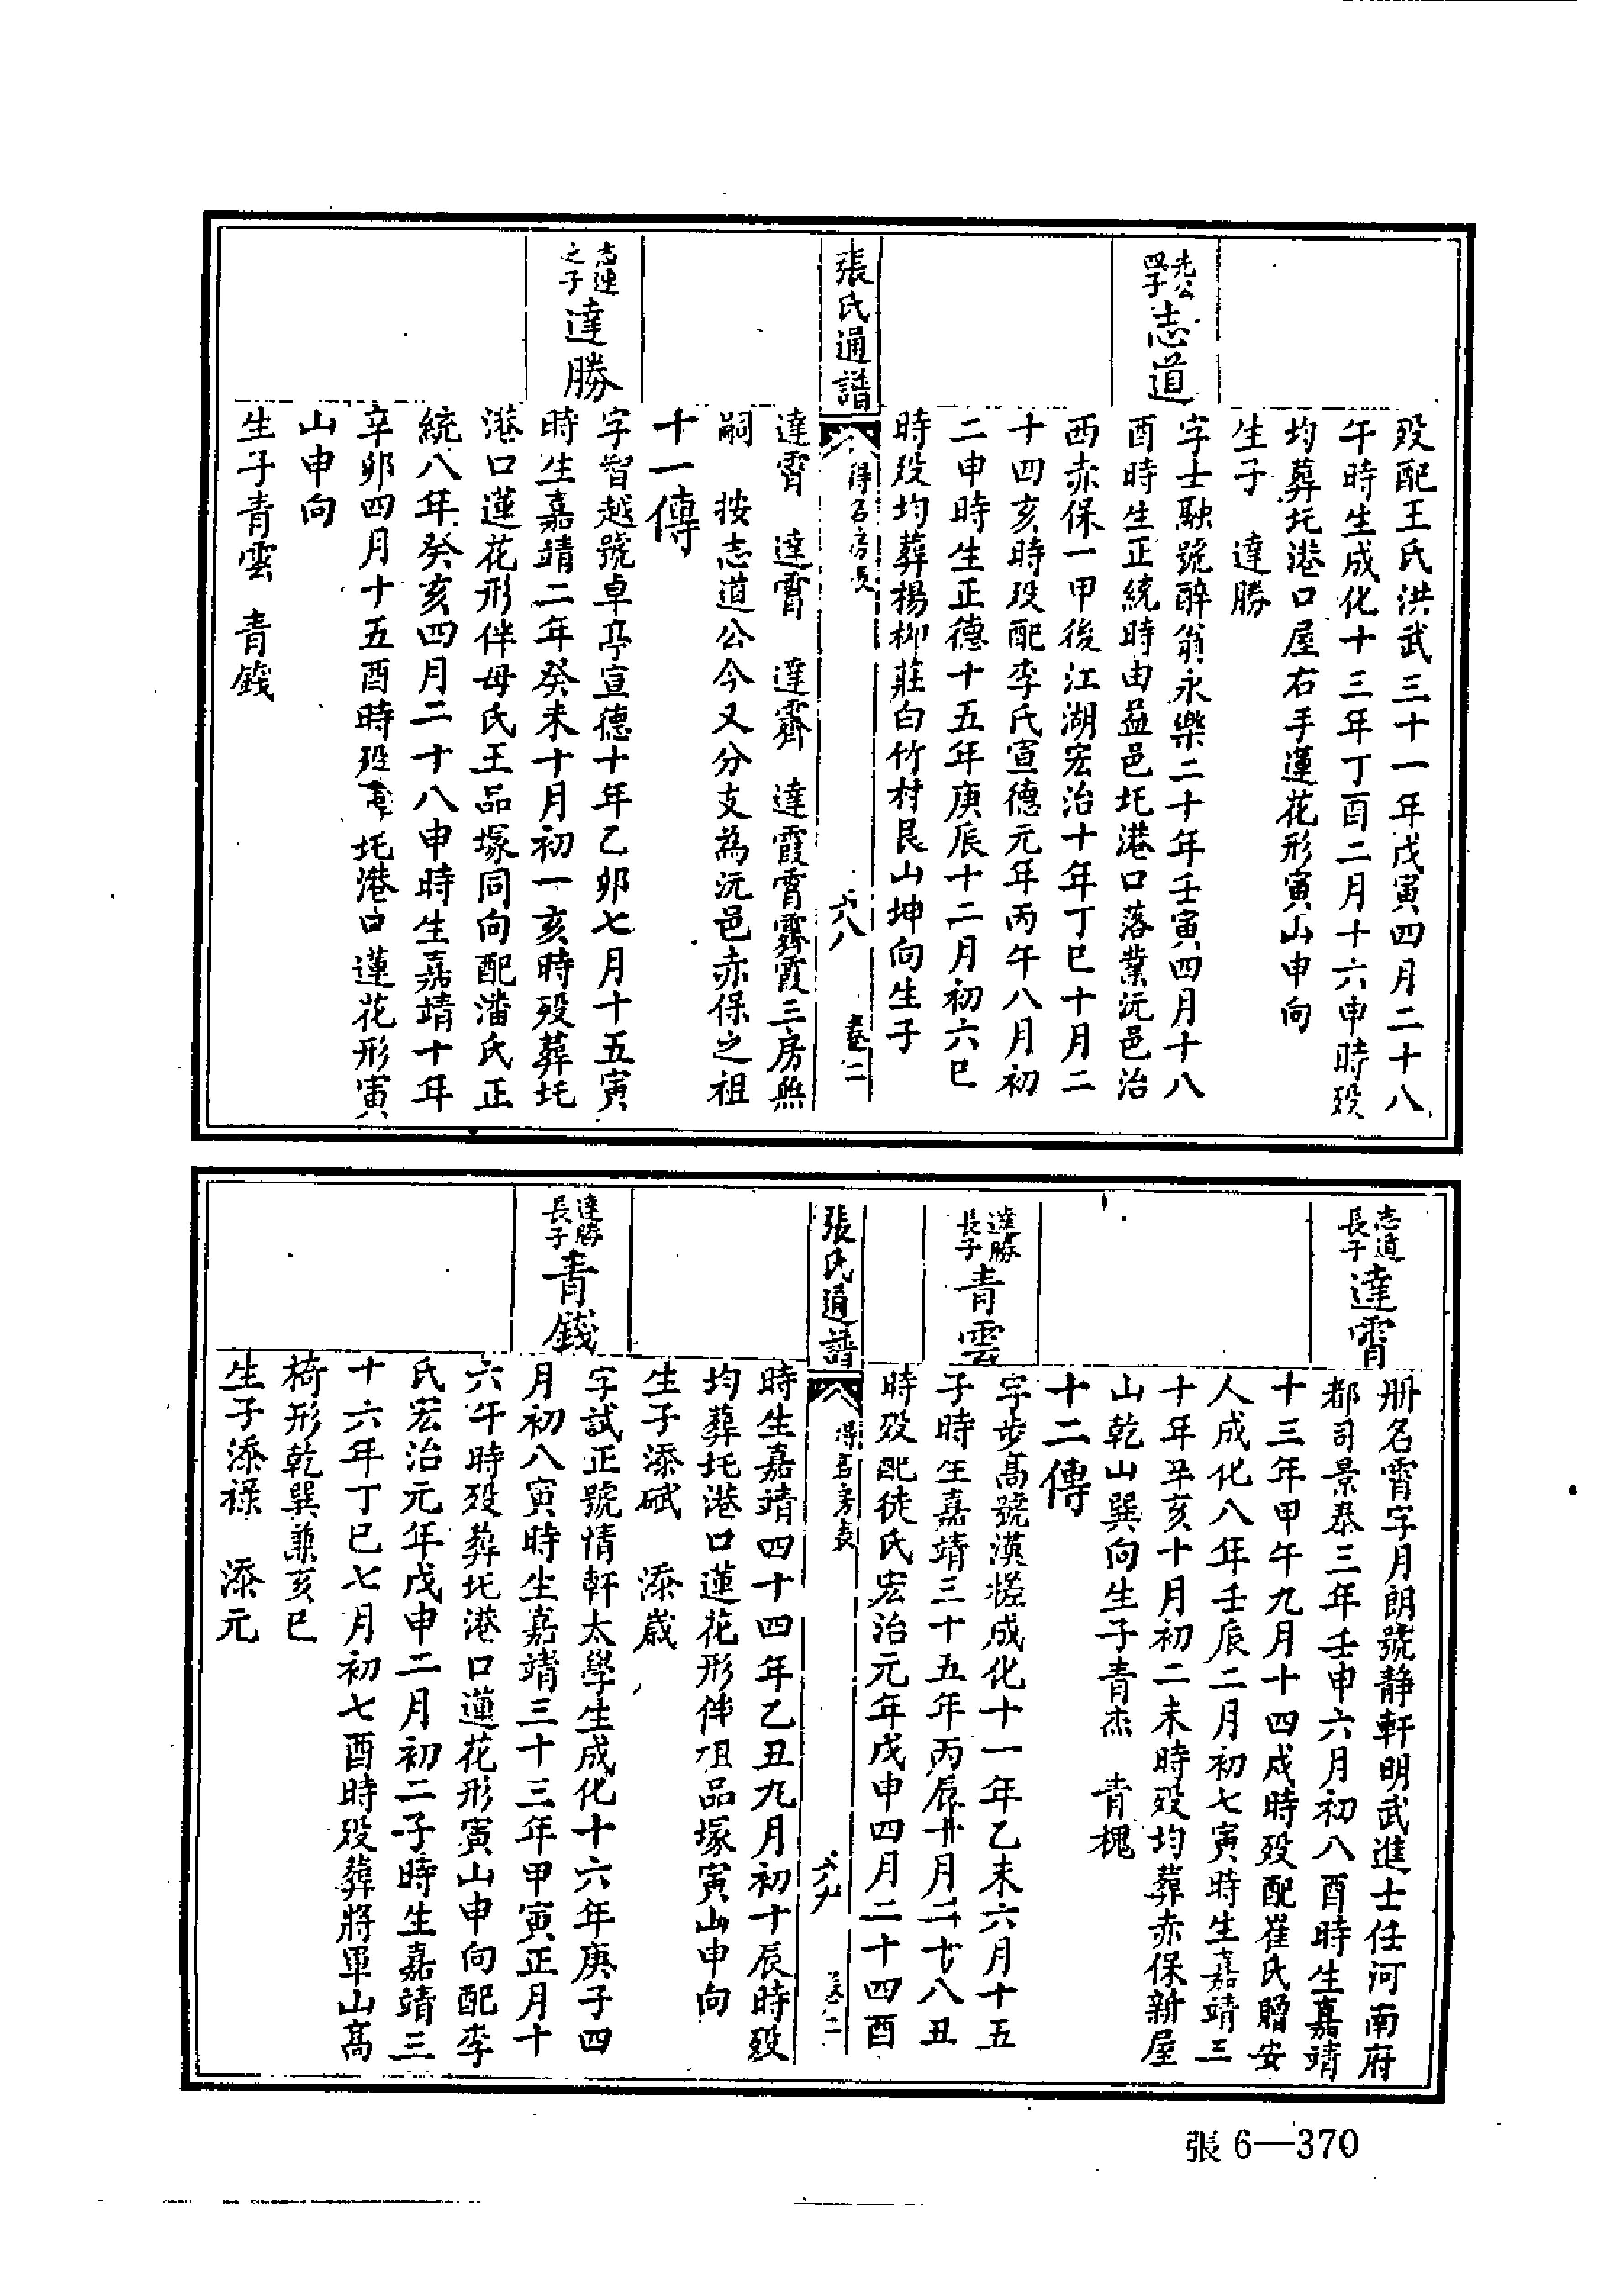 歿配王氏洪武三十一年戊寅四月二十八
午時生成化十三年丁酉二月十六申時歿
均葬圫港口屋右手蓮花形寅山申向
生子　達勝
志公四子 志道
字士駛號醉翁永樂二十年壬寅四月十八
酉時生正統時由益邑圫港口落業沅邑治
西赤保一甲後江湖宏治十年丁巳十月二
十四亥時歿配李氏宣德元年丙午八月初
二申時生正德十五年庚辰十二月初六巳
時歿均葬楊柳莊白竹村艮山坤向生子
張氏通譜
得名房長　六八　卷二
達霄　達霄　達霽　達霞霄霽霞三房無
嗣　按志道公今又分支為沅邑赤保之祖
十一傳
志連之子 達勝
字智越號卓亭宣德十年乙卯七月十五寅
時生嘉靖二年癸未十月初一亥時歿葬圫
港口蓮花形伴母氏王品塚同向配潘氏正
統八年癸亥四月二十八申時生嘉靖十年
辛卯四月十五酉時歿 圫港口蓮花形寅
山申向
生子青雲　青錢
志道長子 達霄
册名霄字月朗號静軒明武進士任河南府
都司景泰三年壬申六月初八酉時生嘉靖
十三年甲午九月十四戌時歿配崔氏贈安
人成化八年壬辰二月初七寅時生嘉靖三
十年辛亥十月初二未時歿均葬赤保新屋
山乾山巽向生子青杰　青槐
十二傳
達勝長子 青雲
字步高號漢槎成化十一年乙未六月十五
子時生嘉靖三十五年丙辰廿月二十八丑
時歿配徒氏宏治元年戊申四月二十四酉
張氏通譜
得名房長　六九　卷二
時生嘉靖四十四年乙丑九月初十辰時歿
均葬圫港口蓮花形伴祖品塚寅山申向
生子添斌　添歲
達勝長子 青錢
字試正號情軒太學生成化十六年庚子四
月初八寅時生嘉靖三十三年甲寅正月十
六午時歿葬圫港口蓮花形寅山申向配李
氏宏治元年戊申二月初二子時生嘉靖三
十六年丁巳七月初七酉時歿葬將軍山高
椅形乾巽兼亥巳
生子添祿　添元
張 6—370